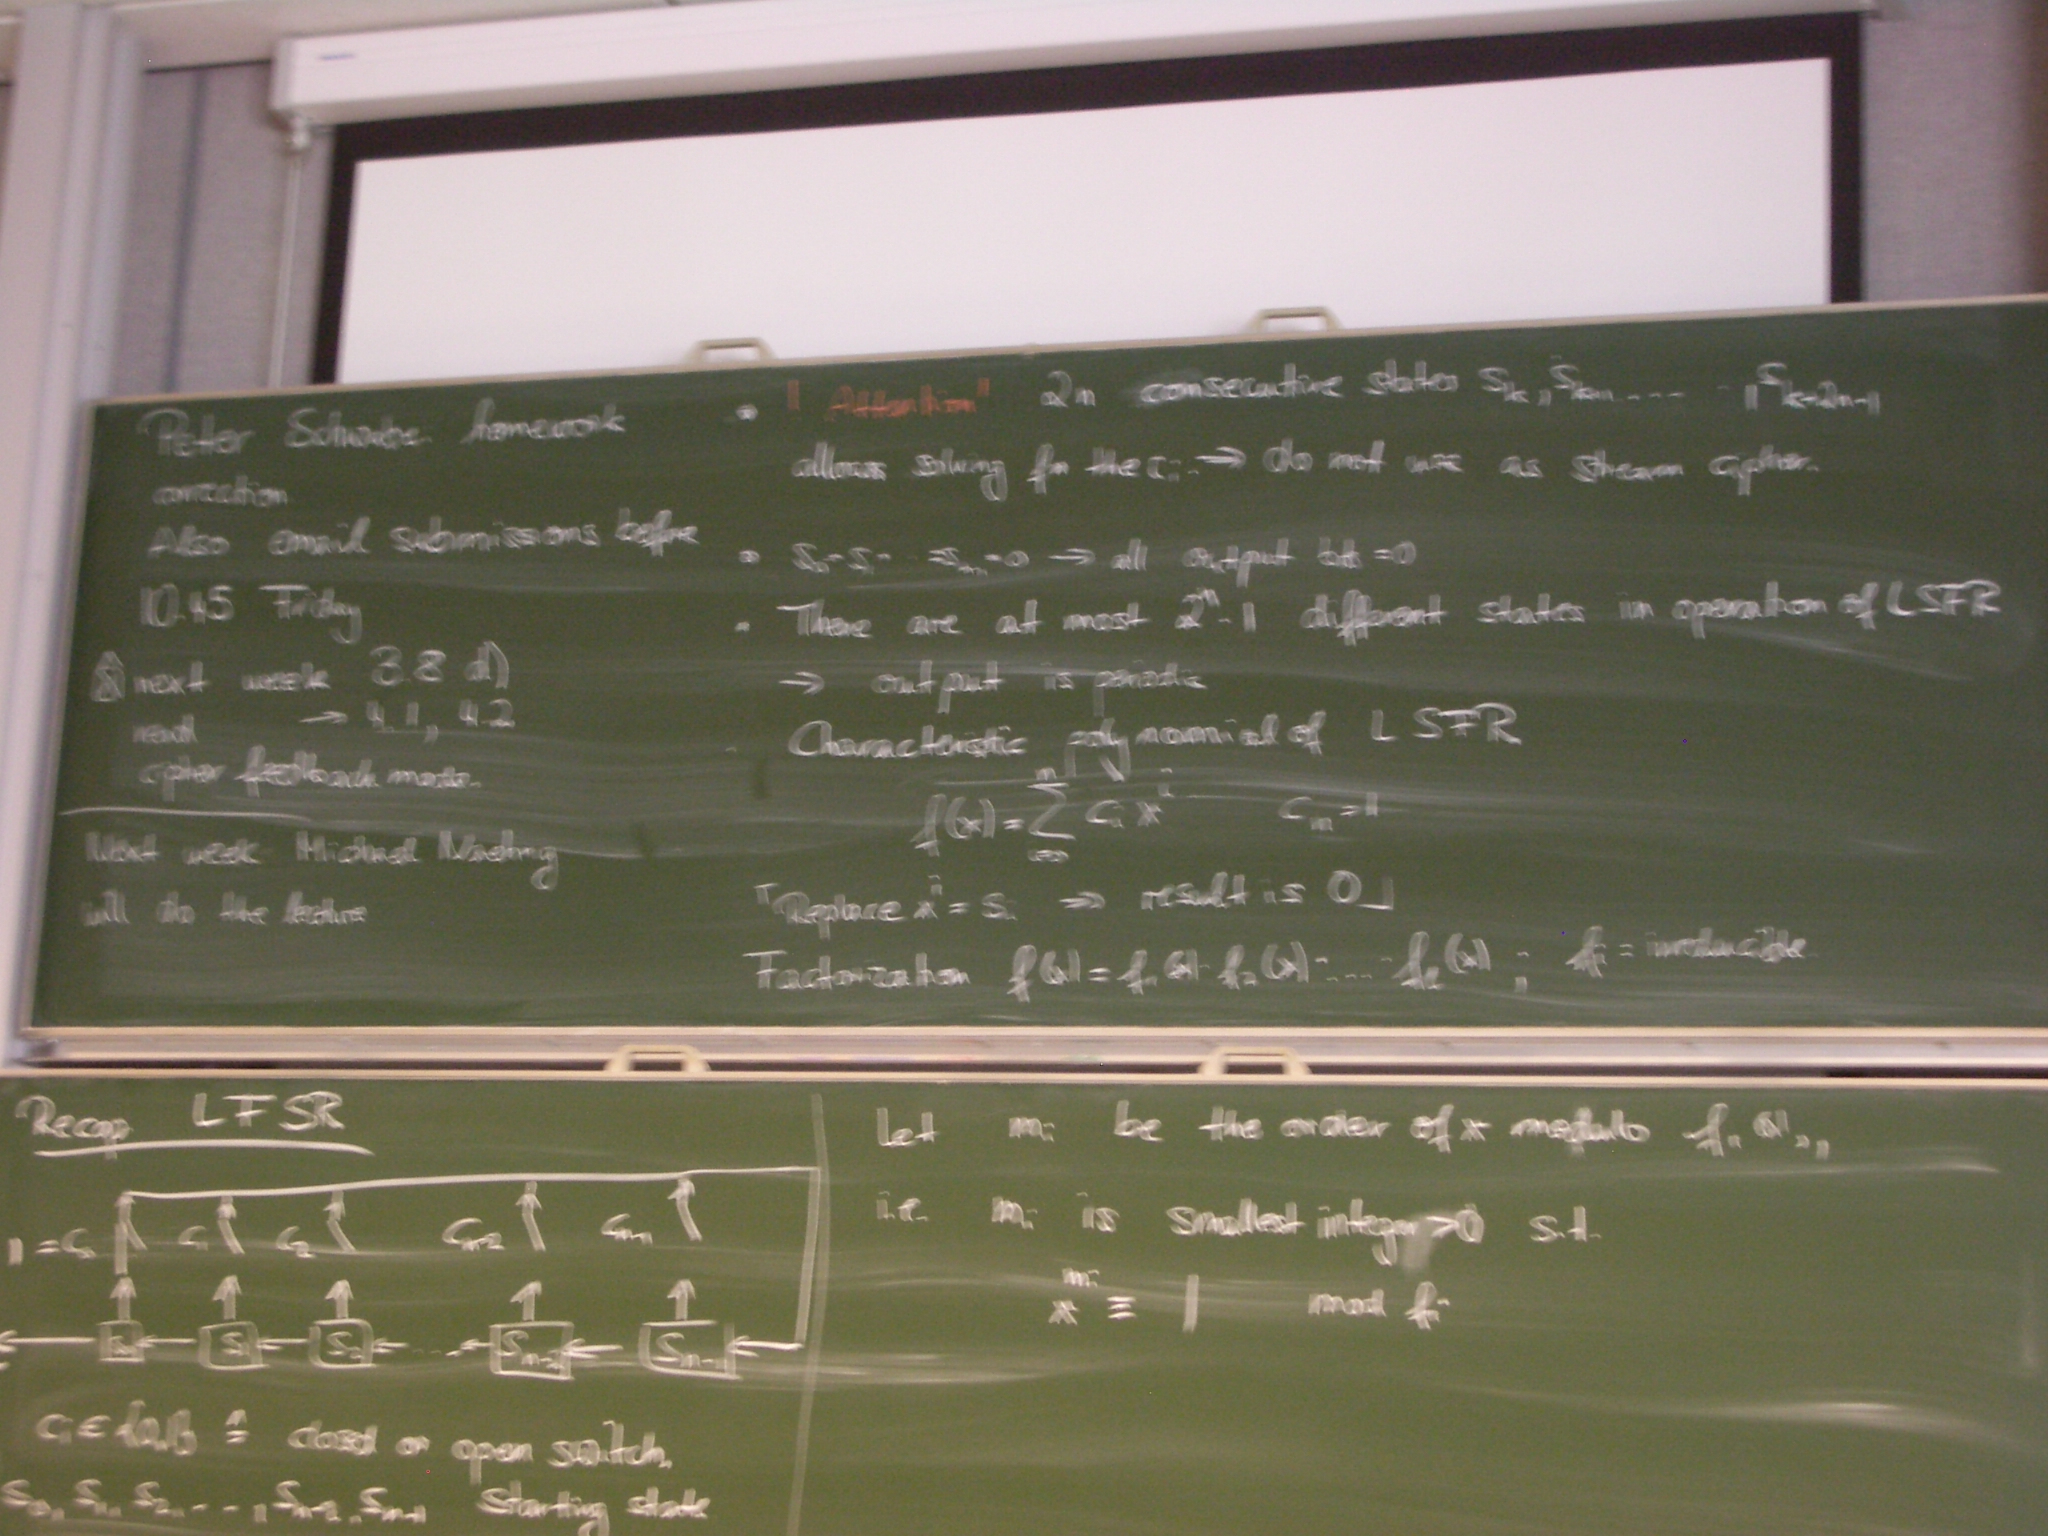 Peter Schwabe homework
correction
Also email submissions before
10.45 Friday
next week 3.8 d)
read → 4.1, 4.2
cipher feedback mode.
Next week Michael Naehrig
will do the lecture
• ! Attention! 2n consecutive states S_k, S_{k+1}, ..., S_{k+2n-1}
allows solving for the c_i → do not use as stream cipher.
• S_0=S_1=...=S_{n-1}=0 → all output bits =0
• There are at most 2^n-1 different states in operation of LSFR
→ output is periodic
• Characteristic polynomial of LSFR
f(x) = Σ_{i=0}^{n} c_i x^i c_n=1
"Replace x^i = s_i → result is 0"
Factorization f(x) = f_1(x)·f_2(x)·...·f_k(x) ; f_i = irreducible
Recap LFSR
1=c_0 c_1 c_2 c_{n-2} c_{n-1}
S_0 S_1 S_2 ... S_{n-2} S_{n-1}
c_i ∈ {0,1} ≙ closed or open switch.
S_0, S_1, S_2, ..., S_{n-2}, S_{n-1} starting state
Let m_i be the order of x modulo f_i(x),
i.e. m_i is smallest integer >0 s.t.
x^{m_i} ≡ 1 mod f_i